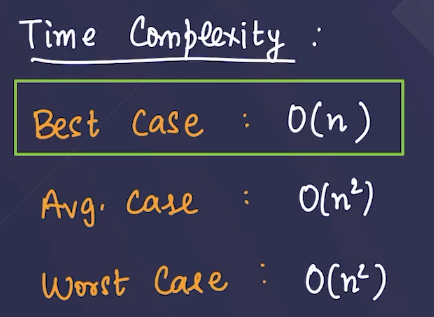 Time Complexity :
Best Case : O(n)
Avg. Case : O(n²)
Worst Case : O(n²)